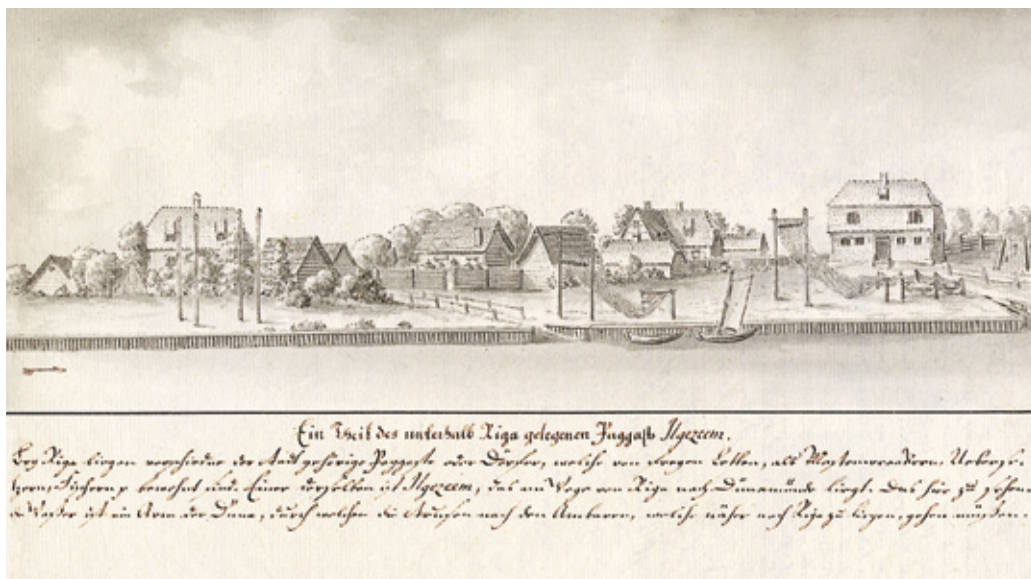 Ein Theil des unterhalb Riga gelegenen Paggasts Ilgezeem.
Bey Riga liegen verschiedene der Stadt gehörige Paggaste oder Dörfer, welche von freyen Letten, als
bewohnt sind. Einer derselben ist Ilgezeem, das am Wege von Riga nach Dünamünde liegt. Das hier zu sehen
Wasser ist ein Arm der Düna, durch welchen die Strusen nach den Ambaren, welche näher nach Riga zu liegen, gehen müssen.